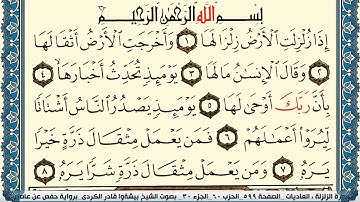 بِسْمِ ٱللَّهِ ٱلرَّحْمَٰنِ ٱلرَّحِيمِ
إِذَا زُلْزِلَتِ ٱلْأَرْضُ زِلْزَالَهَا ١ وَأَخْرَجَتِ ٱلْأَرْضُ أَثْقَالَهَا
٢ وَقَالَ ٱلْإِنسَٰنُ مَا لَهَا ٣ يَوْمَئِذٍ تُحَدِّثُ أَخْبَارَهَا ٤
بِأَنَّ رَبَّكَ أَوْحَىٰ لَهَا ٥ يَوْمَئِذٍ يَصْدُرُ ٱلنَّاسُ أَشْتَاتًا
لِّيُرَوْا۟ أَعْمَٰلَهُمْ ٦ فَمَن يَعْمَلْ مِثْقَالَ ذَرَّةٍ خَيْرًا
يَرَهُۥ ٧ وَمَن يَعْمَلْ مِثْقَالَ ذَرَّةٍ شَرًّا يَرَهُۥ ٨
الزلزلة ، العاديات . الصفحة ٥٩٩ . الحزب ٦٠ . الجزء ٣٠ . بصوت الشيخ بيشةوا قادر الكردي . برواية حفص عن عاصم